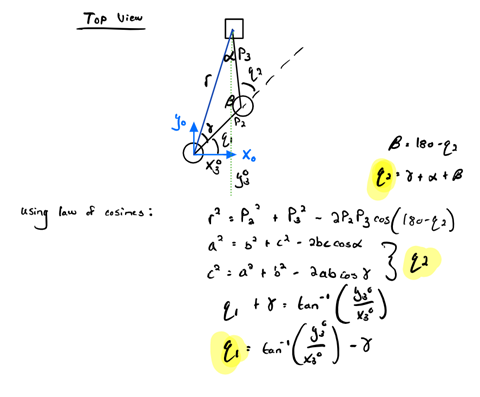 TOP VIEW
α P3
r
q2
β
P2
y0
γ q1
x0
x3^0
y3^0
β = 180 - q2
q2 = γ + α + β
Using law of cosines:
r² = P2² + P3² - 2P2P3 cos(180 - q2)
a² = b² + c² - 2bc cosα
c² = a² + b² - 2ab cos γ
q2
q1 + γ = tan⁻¹(y3^0 / x3^0)
q1 = tan⁻¹(y3^0 / x3^0) - γ